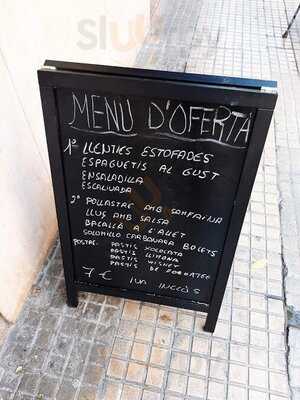 Sluurpy
MENU D'OFERTA
1º LLENTIES ESTOFADES
ESPAGUETIS AL GUST
ENSALADILLA
ESCALIVADA
2º POLLASTRE AMB SAMFAINA
LLUÇ AMB SALSA
BACALLÀ A L'ALLET
SOLOMILLO CARBONARA BOLETS
POSTRE: PASTIS XOCOLATA
PASTIS LLIMONA
PASTIS WISKEY
PASTIS DE FORMATGE
7€ IVA INCLÒS